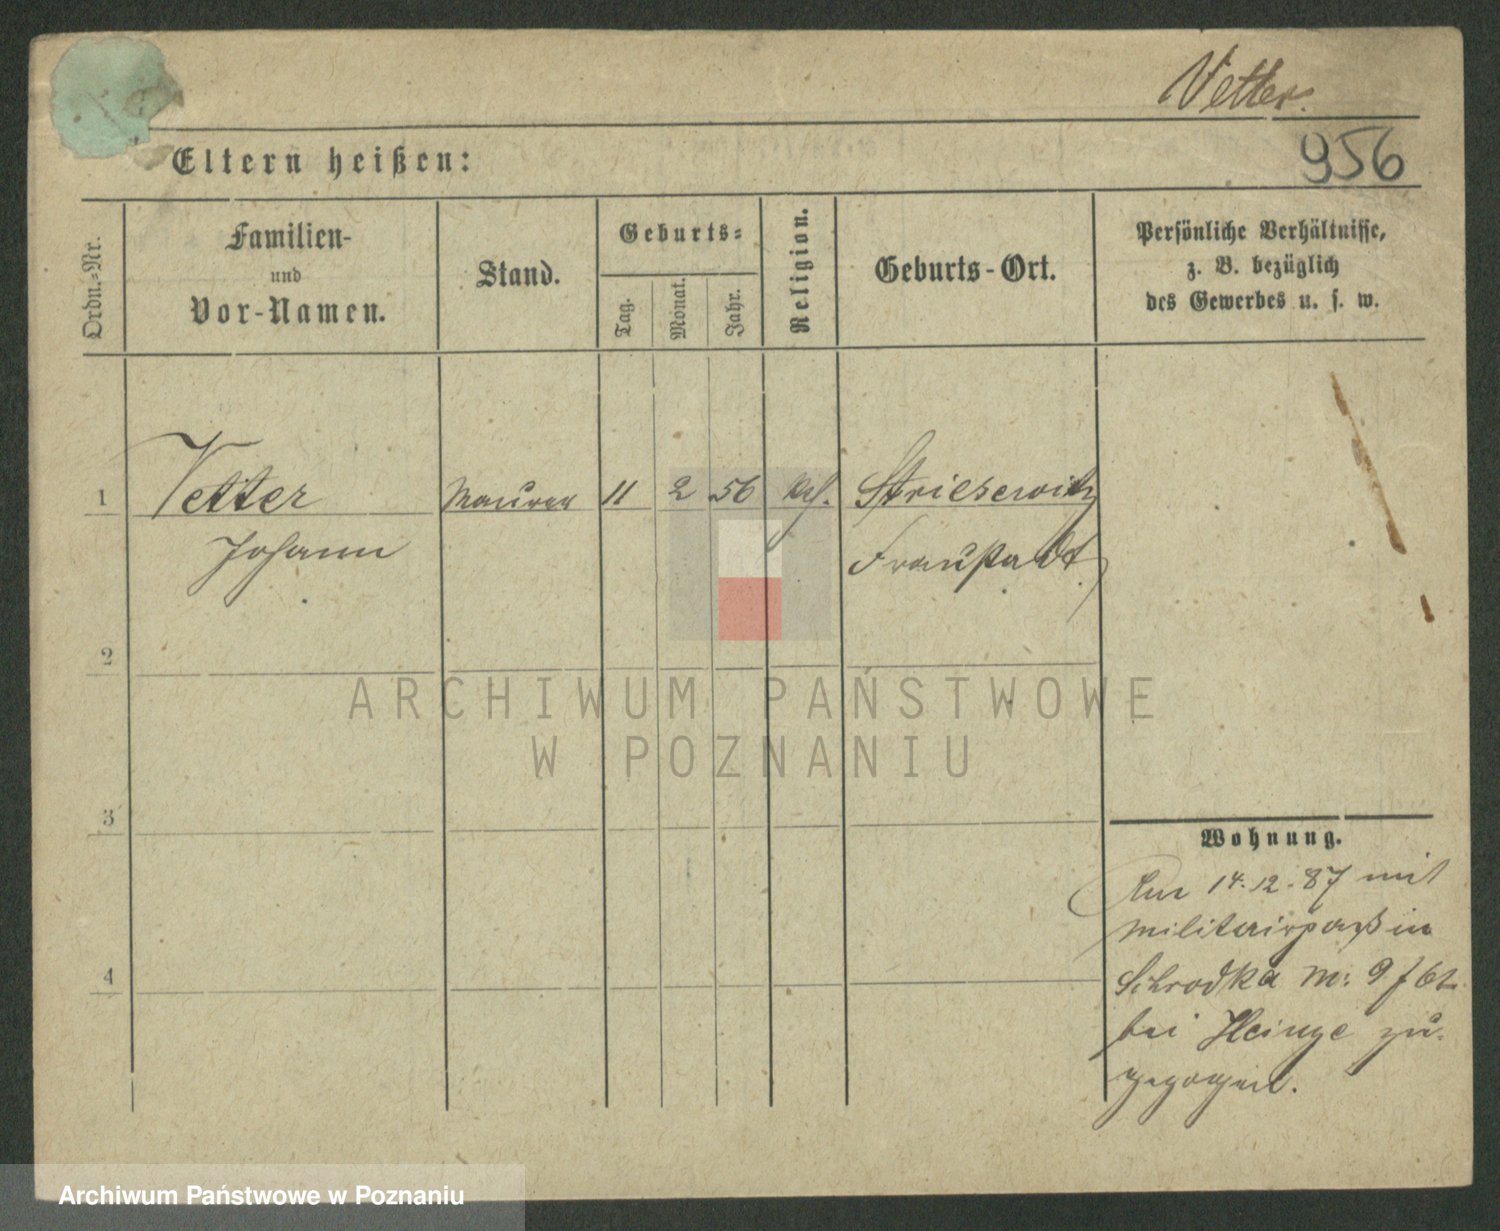 Vetter.
956
Eltern heißen:
Ordn.-Nr.
Familien-
und
Vor-Namen.
Stand.
Geburts-
Tag.
Monat.
Jahr.
Religion.
Geburts-Ort.
Persönliche Verhältnisse,
z. B. bezüglich
des Gewerbes u. s. w.
1 Vetter Maurer 11 2 56 Striesewitz
Johann Fraustadt
2
ARCHIWUM PAŃSTWOWE
W POZNANIU
3
Wohnung.
Am 14.12.87 mit
Militairpaß in
4
Schrodka No: 9
bei Heinze zu-
gezogen.
Archiwum Państwowe w Poznaniu